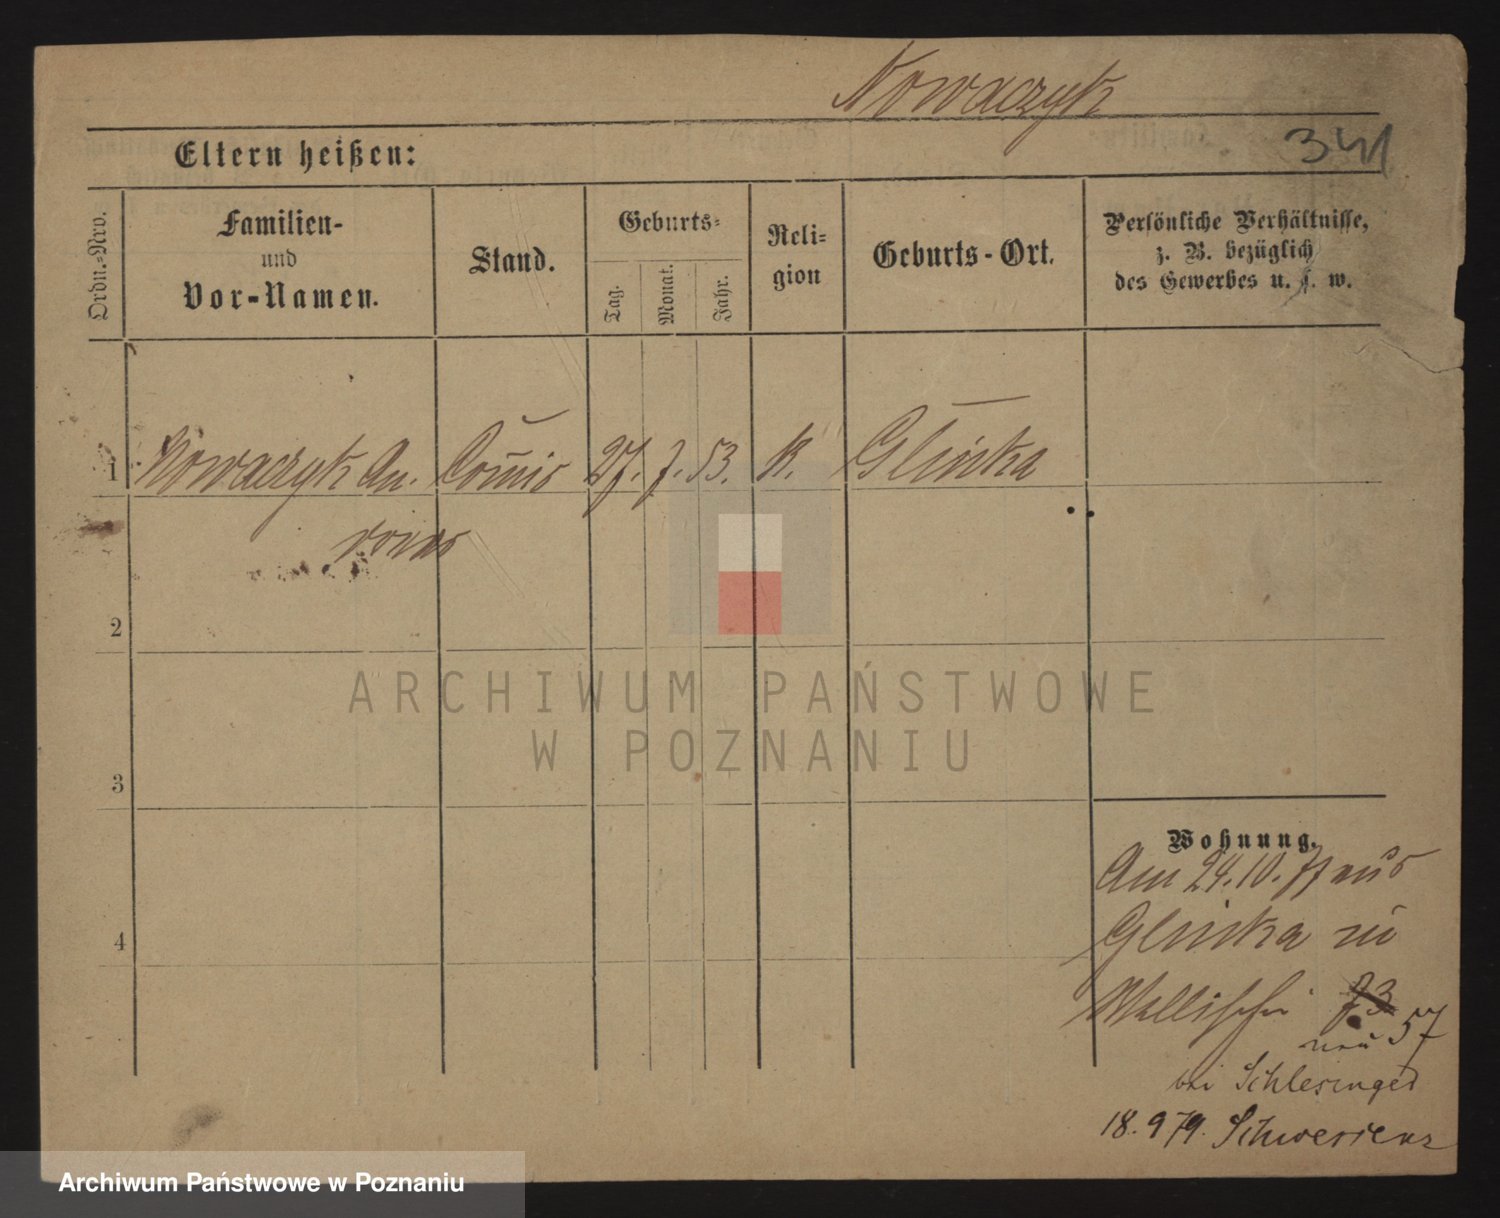 Nowaczyk
341
Eltern heißen:
Ordn.-Nro.
Familien-
und
Vor-Namen.
Stand.
Geburts-
Tag.
Monat.
Jahr.
Reli-
gion
Geburts-Ort.
Persönliche Verhältnisse,
z. B. bezüglich
des Gewerbes u. s. w.
1 Nowaczyk An. Comis 27. 7. 53. K. Glinka
2
3
4
Wohnung.
Am 24.10.77 aus
Glinka in
Wallischei 73
neu 57
bei Schlesinger
18.9 79. Schwersenz
ARCHIWUM PAŃSTWOWE
W POZNANIU
Archiwum Państwowe w Poznaniu